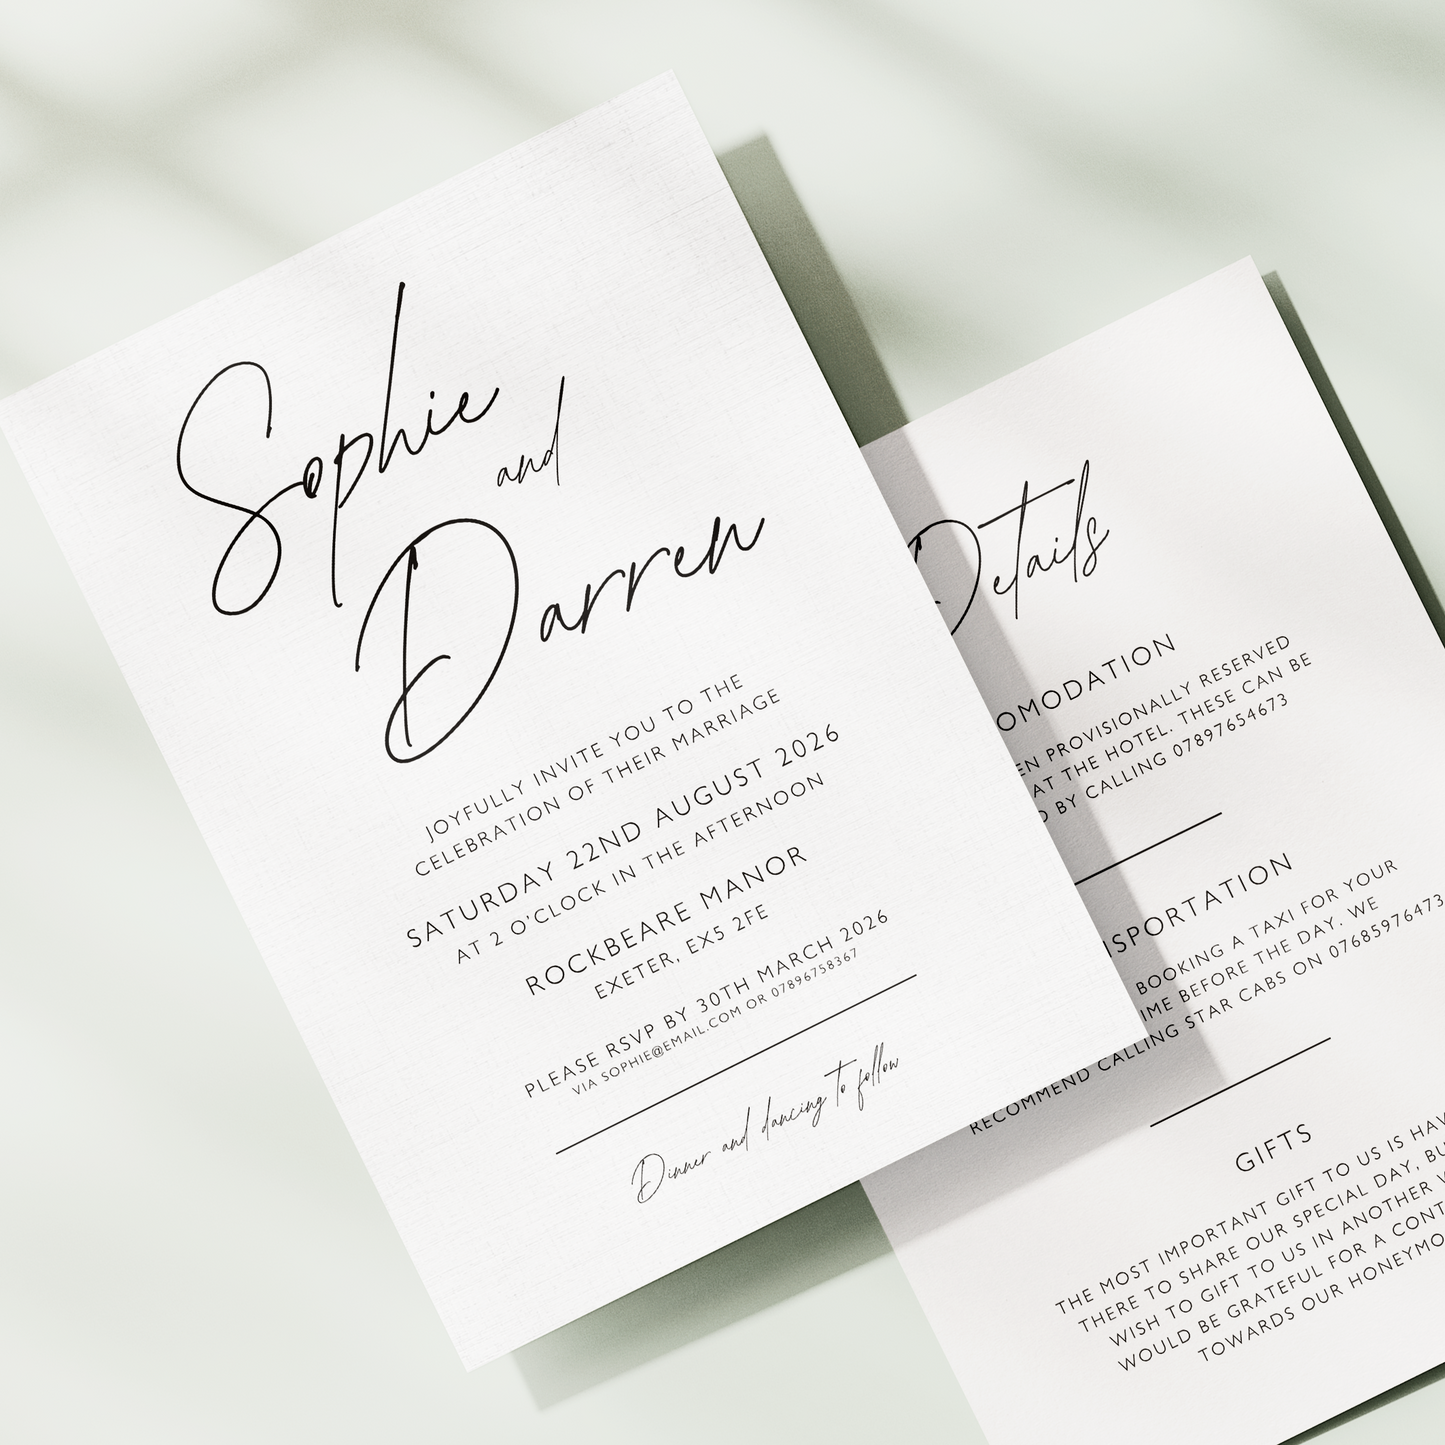 Sophie
and
Darren
JOYFULLY INVITE YOU TO THE
CELEBRATION OF THEIR MARRIAGE
SATURDAY 22ND AUGUST 2026
AT 2 O'CLOCK IN THE AFTERNOON
ROCKBEARE MANOR
EXETER, EX5 2FE
PLEASE RSVP BY 30TH MARCH 2026
VIA SOPHIE@EMAIL.COM OR 07896758367
Dinner and dancing to follow
Details
OMODATION
EN PROVISIONALLY RESERVED
AT THE HOTEL. THESE CAN BE
D BY CALLING 07897654673
NSPORTATION
BOOKING A TAXI FOR YOUR
IME BEFORE THE DAY. WE
RECOMMEND CALLING STAR CABS ON 07685976473
GIFTS
THE MOST IMPORTANT GIFT TO US IS HAV
THERE TO SHARE OUR SPECIAL DAY, BU
WISH TO GIFT TO US IN ANOTHER
WOULD BE GRATEFUL FOR A CONT
TOWARDS OUR HONEYMO